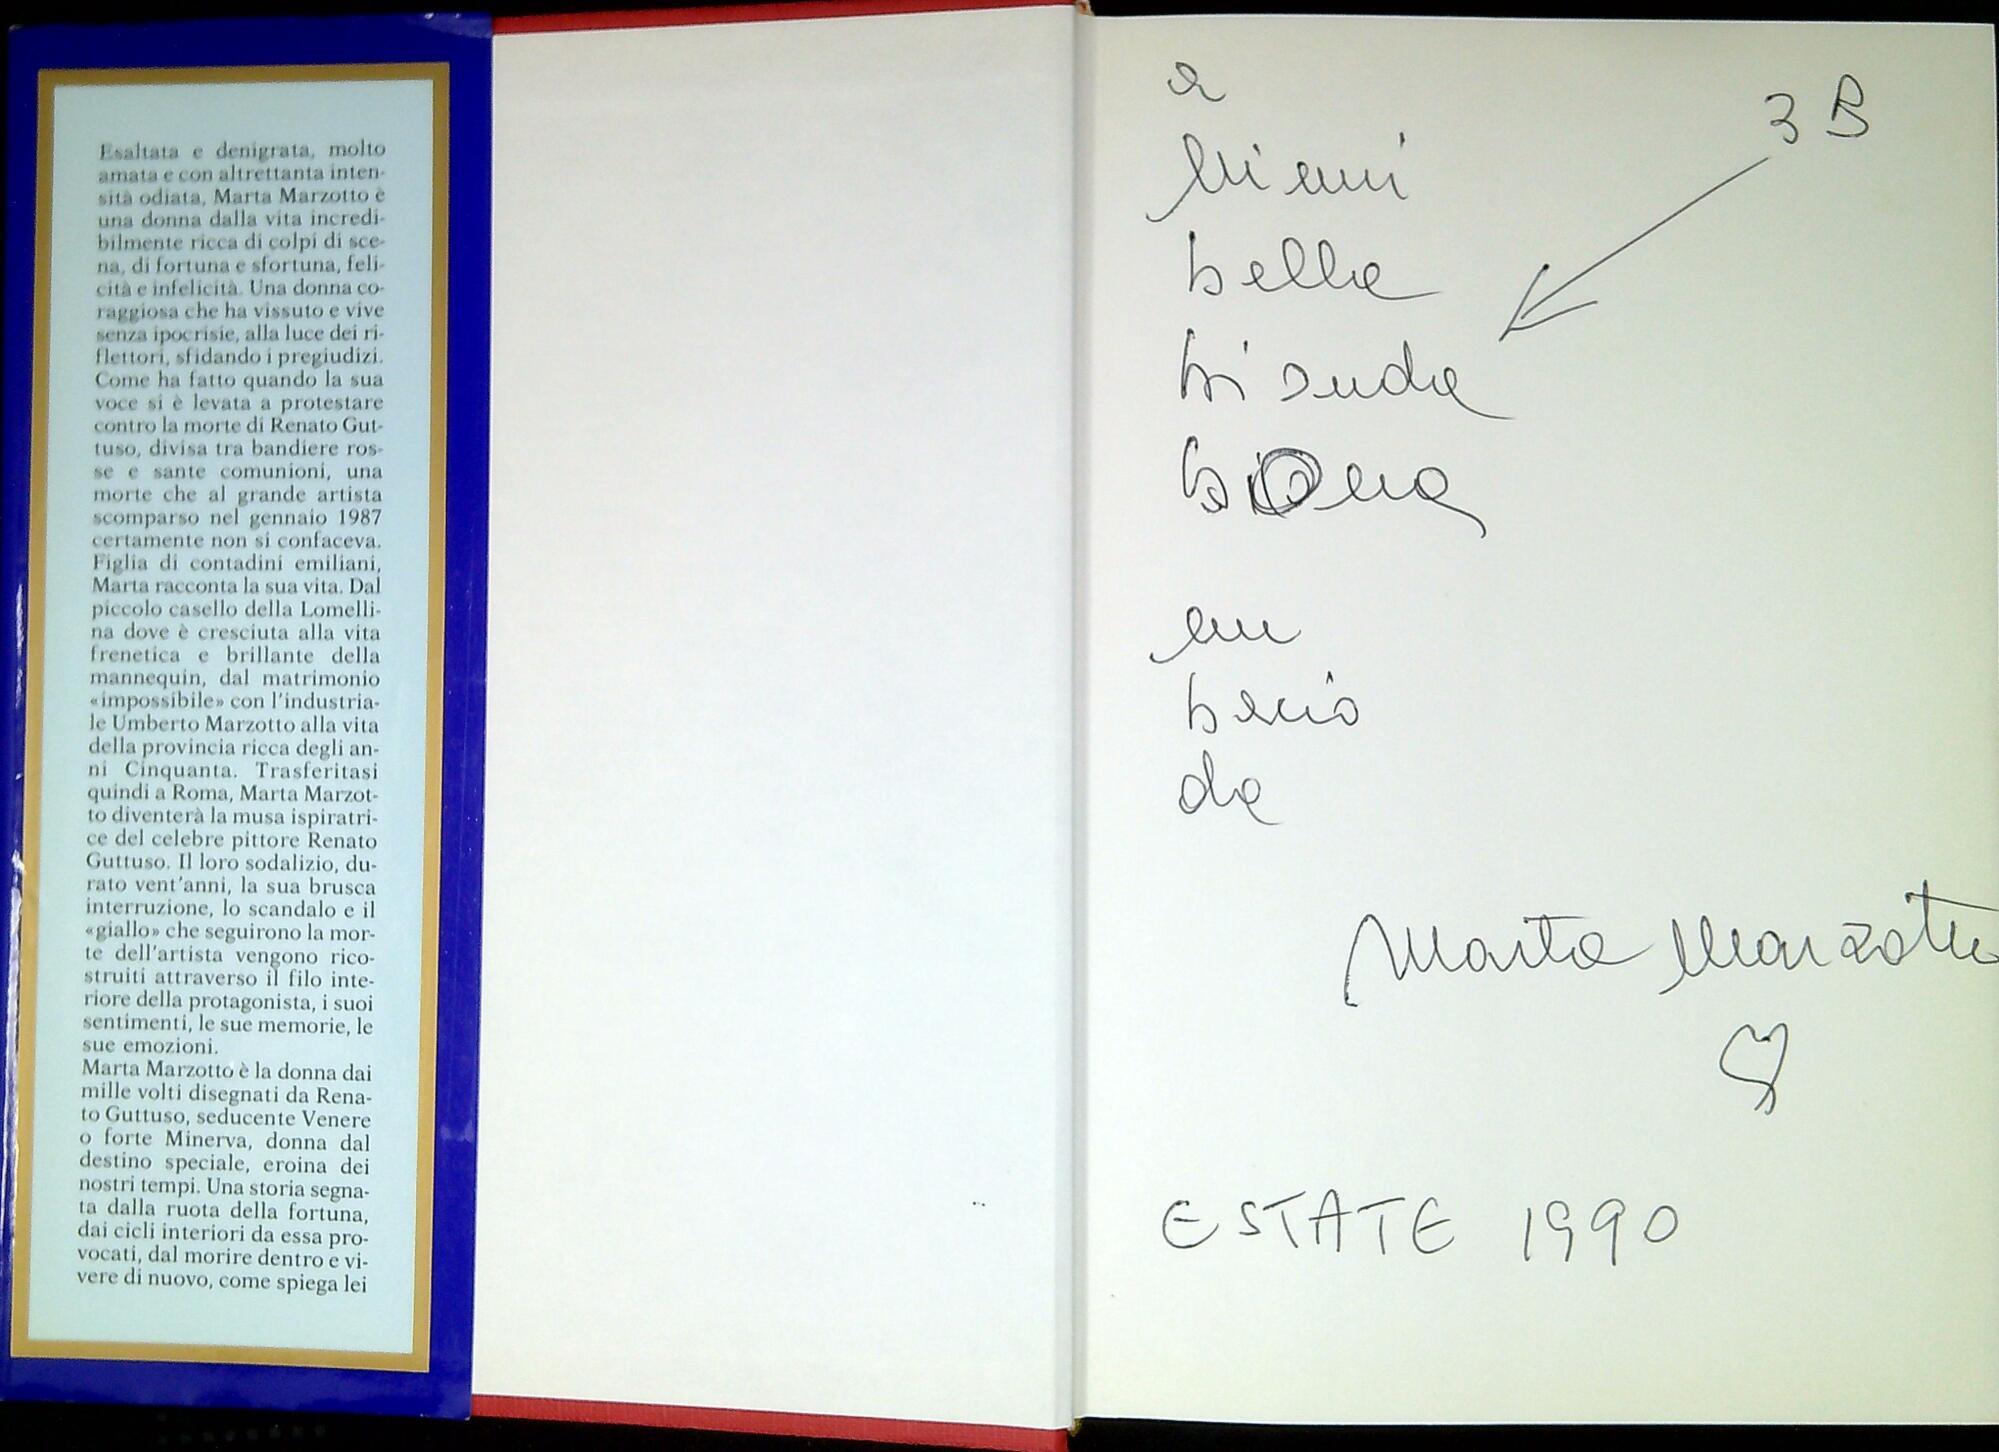 Esaltata e denigrata, molto
amata e con altrettanta inten-
sità odiata, Marta Marzotto è
una donna dalla vita incredi-
bilmente ricca di colpi di sce-
na, di fortuna e sfortuna, feli-
cità e infelicità. Una donna co-
raggiosa che ha vissuto e vive
senza ipocrisie, alla luce dei ri-
flettori, sfidando i pregiudizi.
Come ha fatto quando la sua
voce si è levata a protestare
contro la morte di Renato Gut-
tuso, divisa tra bandiere ros-
se e sante comunioni, una
morte che al grande artista
scomparso nel gennaio 1987
certamente non si confaceva.
Figlia di contadini emiliani,
Marta racconta la sua vita. Dal
piccolo casello della Lomelli-
na dove è cresciuta alla vita
frenetica e brillante della
mannequin, dal matrimonio
«impossibile» con l'industria-
le Umberto Marzotto alla vita
della provincia ricca degli an-
ni Cinquanta. Trasferitasi
quindi a Roma, Marta Marzot-
to diventerà la musa ispiratri-
ce del celebre pittore Renato
Guttuso. Il loro sodalizio, du-
rato vent'anni, la sua brusca
interruzione, lo scandalo e il
«giallo» che seguirono la mor-
te dell'artista vengono rico-
struiti attraverso il filo inte-
riore della protagonista, i suoi
sentimenti, le sue memorie, le
sue emozioni.
Marta Marzotto è la donna dai
mille volti disegnati da Rena-
to Guttuso, seducente Venere
o forte Minerva, donna dal
destino speciale, eroina dei
nostri tempi. Una storia segna-
ta dalla ruota della fortuna,
dai cicli interiori da essa pro-
vocati, dal morire dentro e vi-
vere di nuovo, come spiega lei
a
3 B
bella
bionda
buona
un
bacio
da
Marta Marzotto
ESTATE 1990